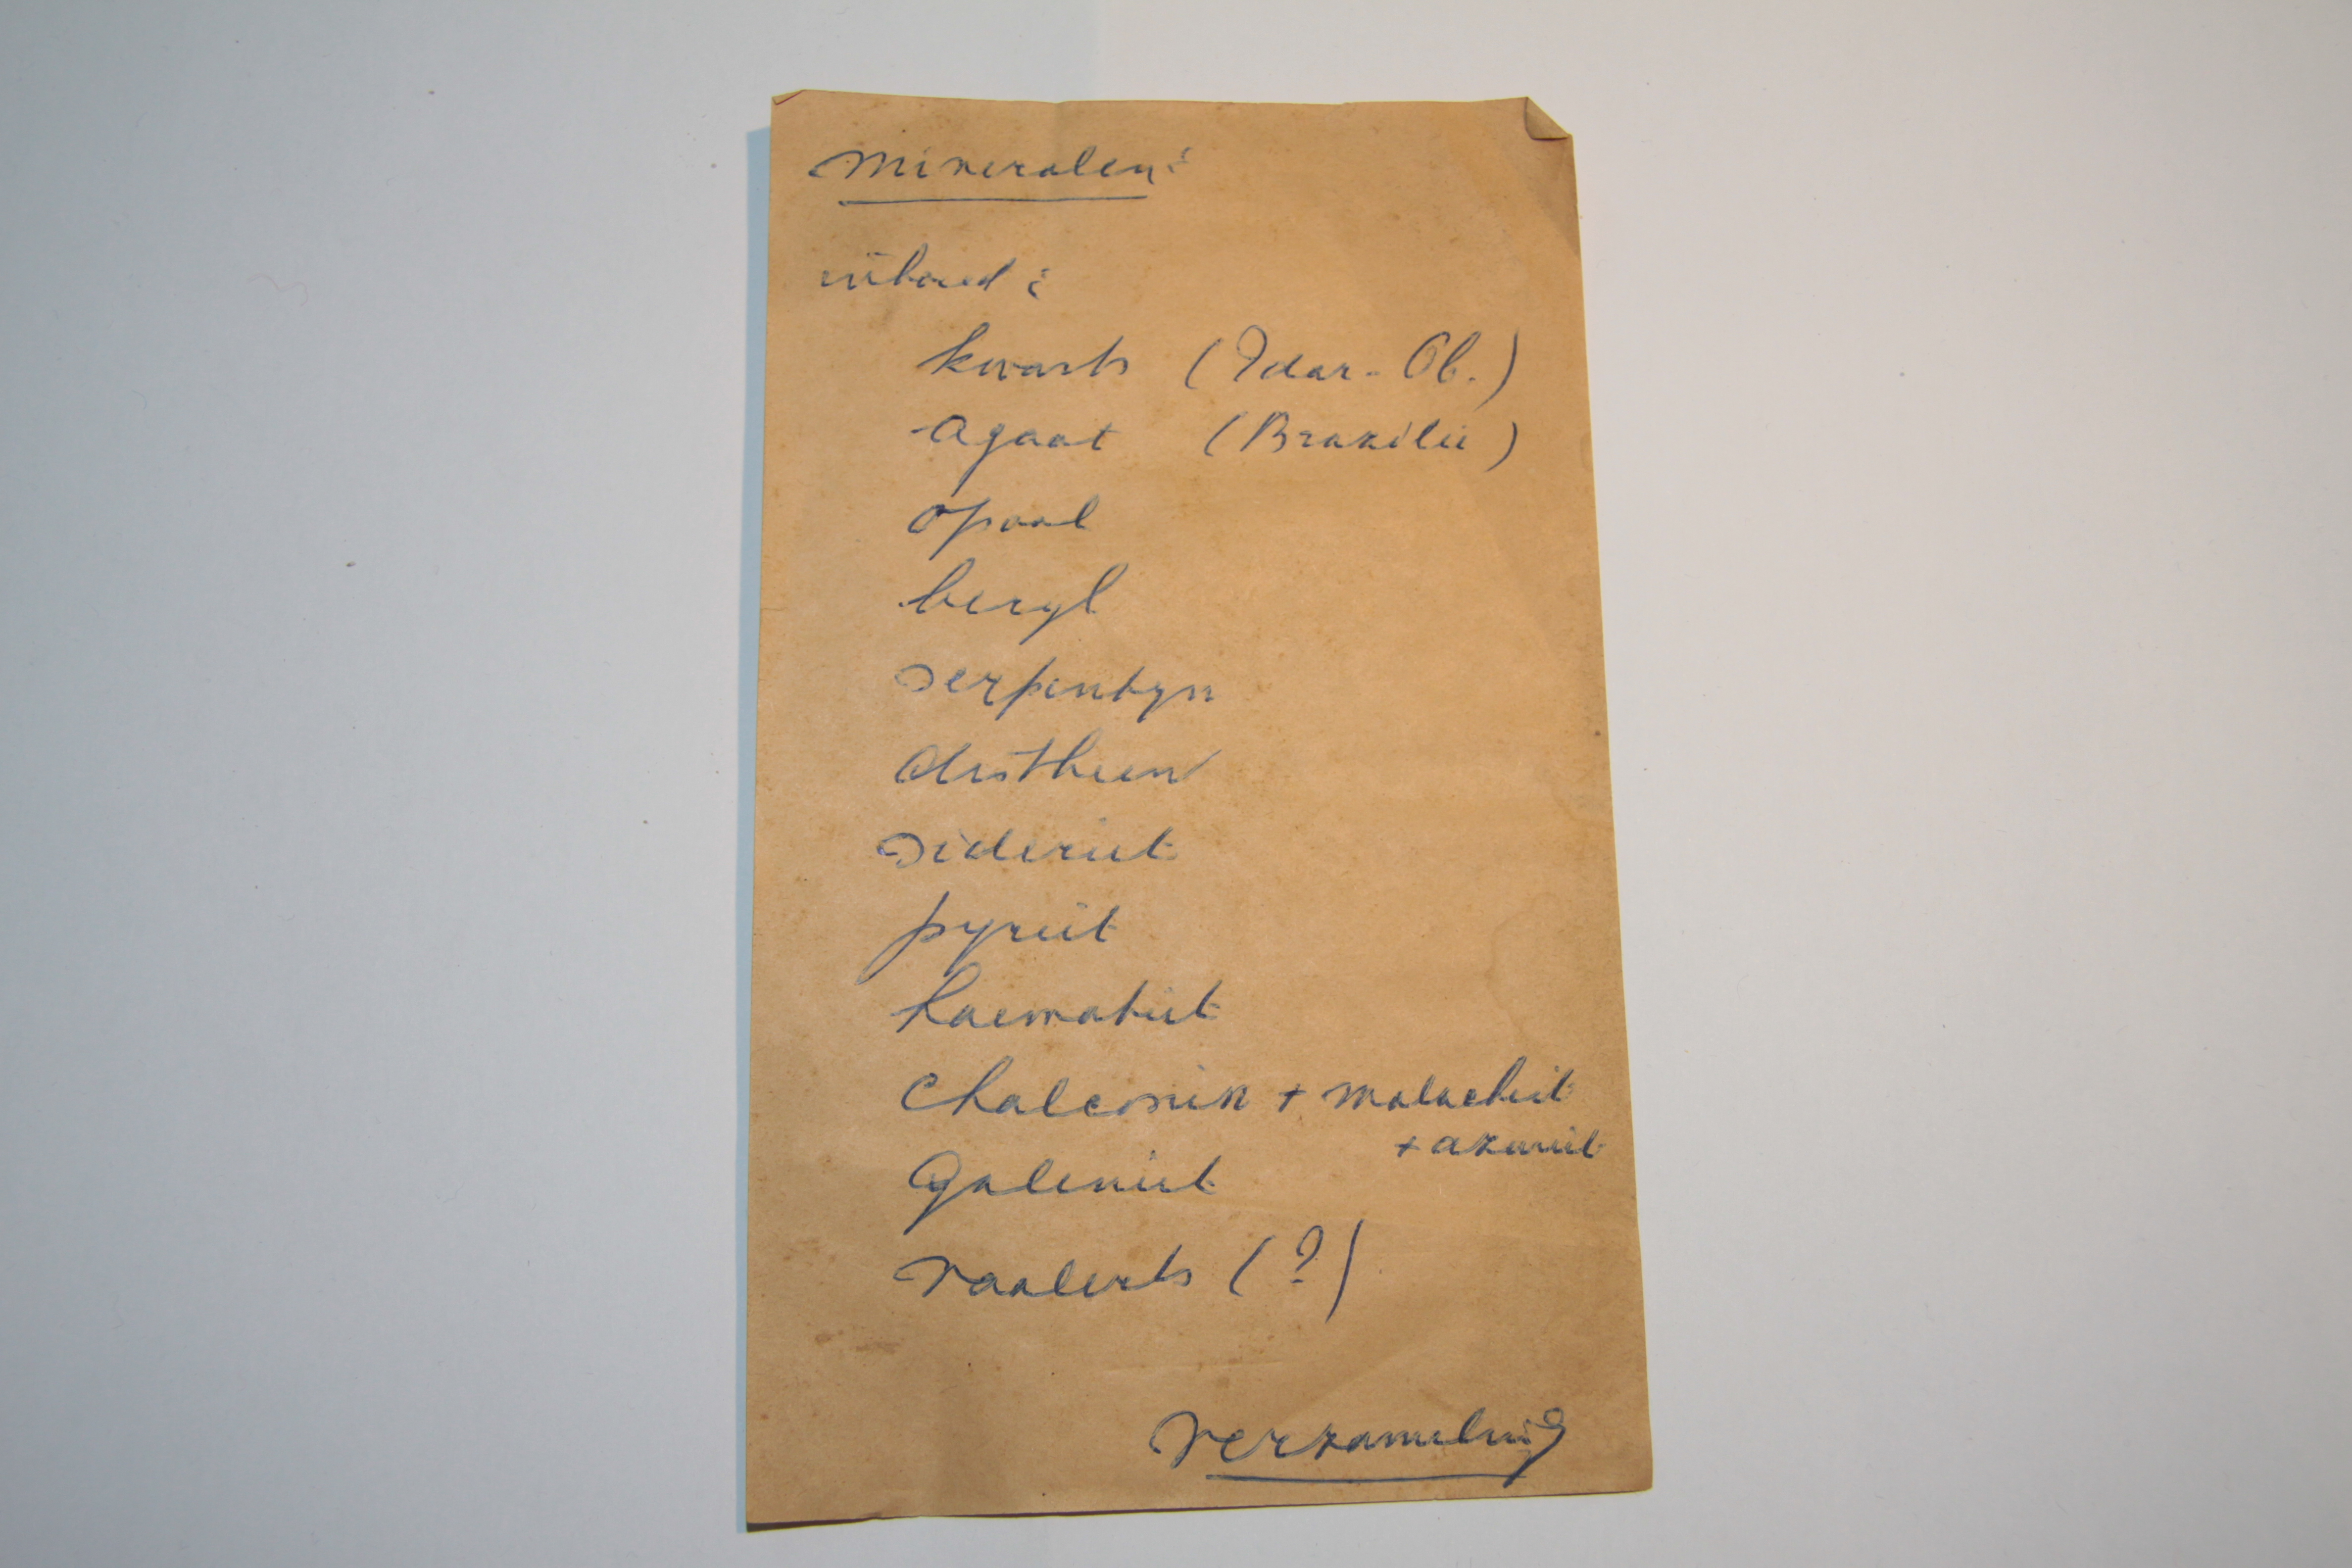 Mineralen:
inhoud:
kwarts (Idar-Ob.)
agaat (Brazilië)
opaal
beryl
serpentyn
distheen
sideriet
pyriet
haematiet
chalcosin + malachiet
+ azuriet
galeniet
vaalerts (?)
verzameling